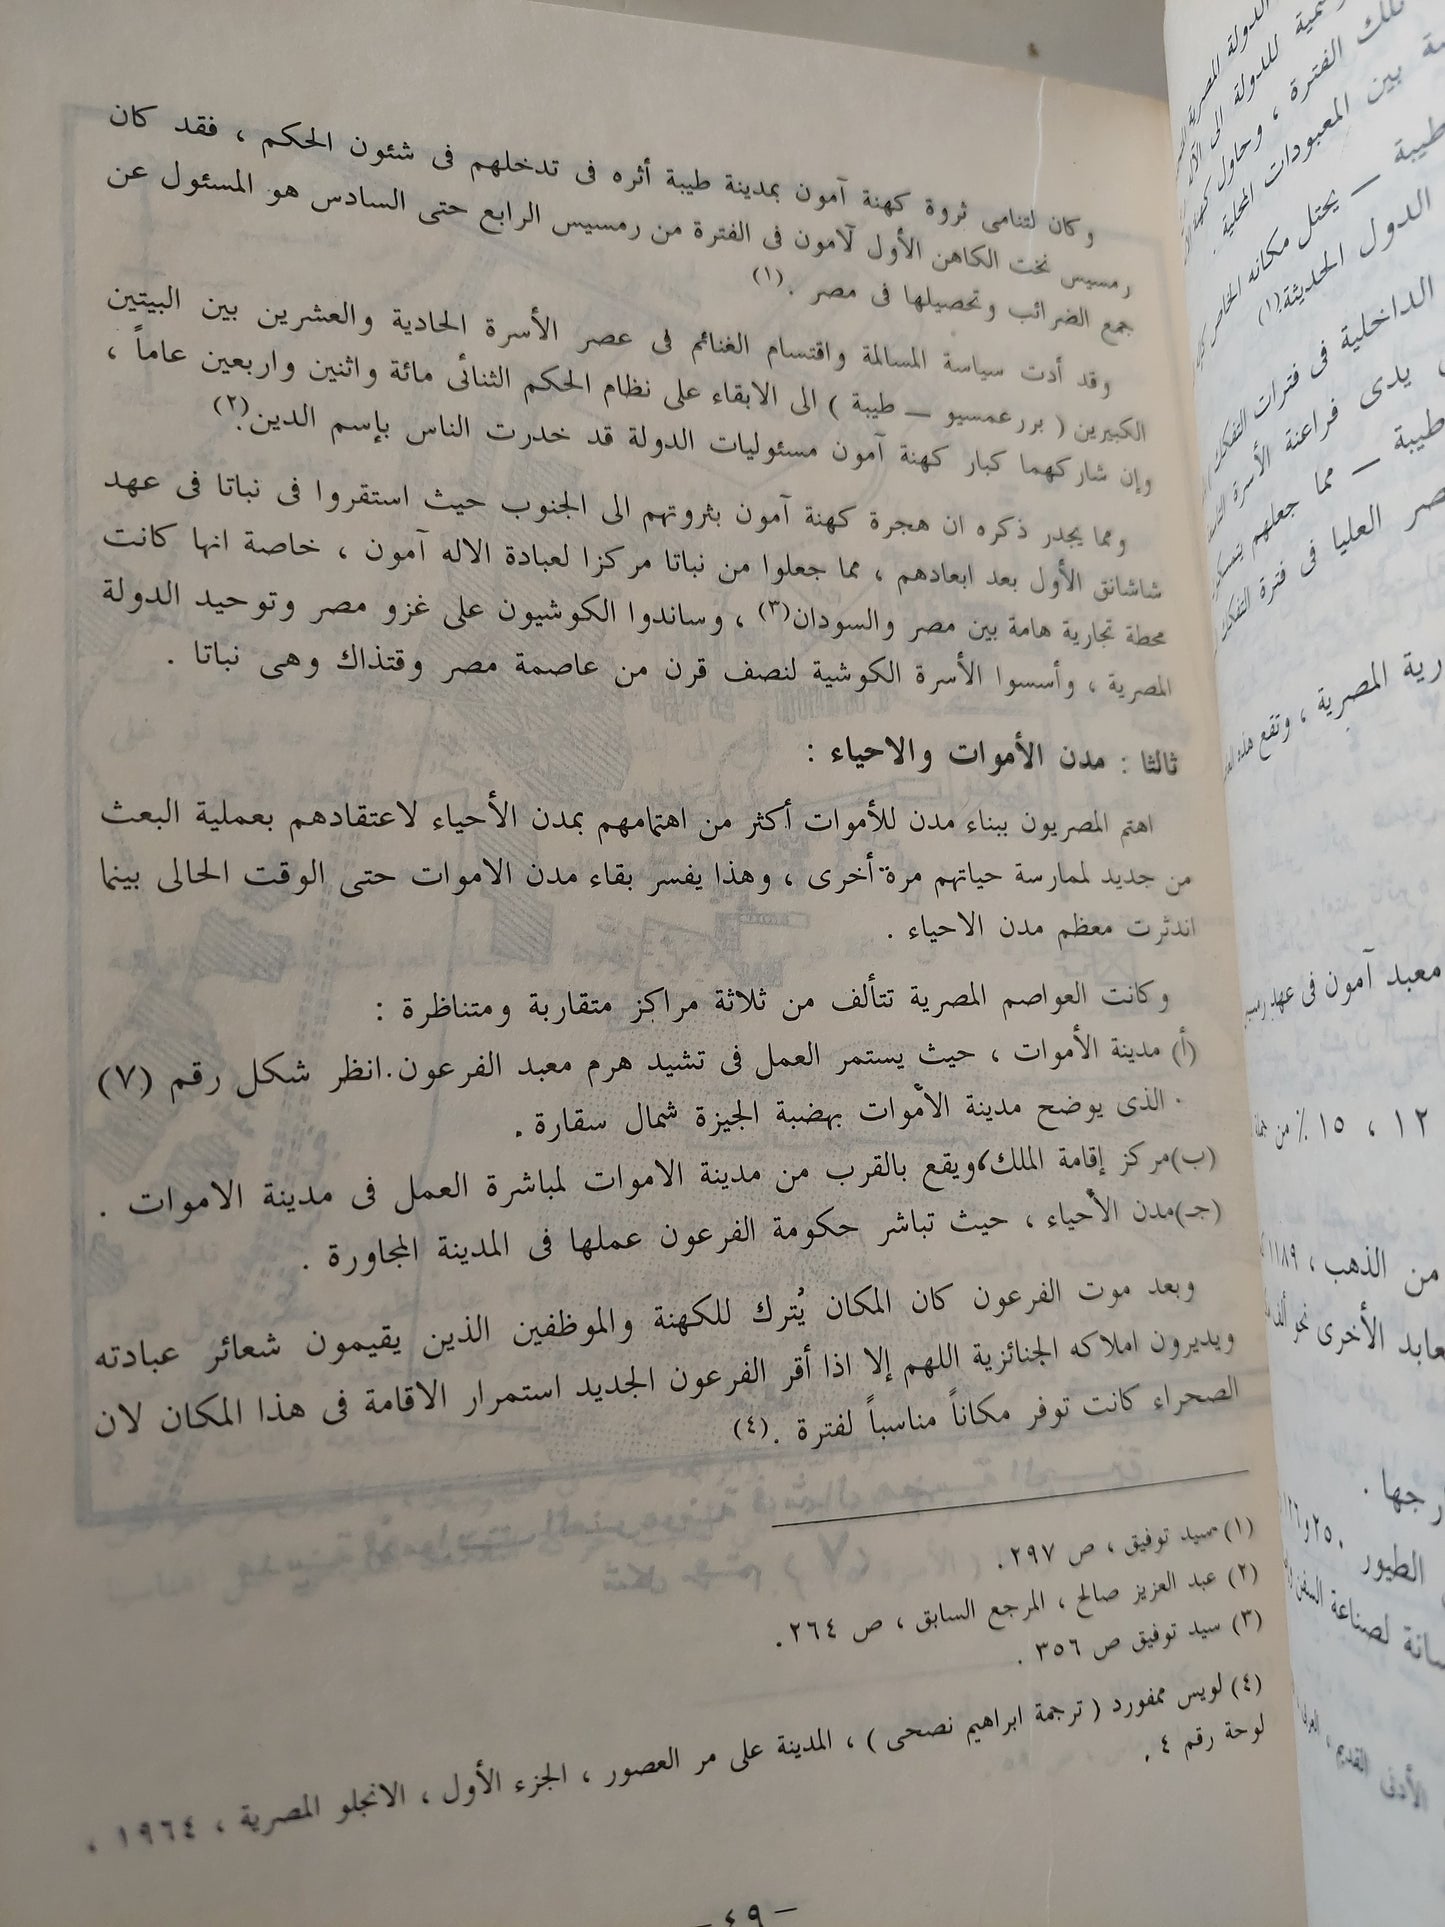 وكان لتنامى ثروة كهنة آمون بمدينة طيبة أثره فى تدخلهم فى شئون الحكم ، فقد كان
رمسيس نخت الكاهن الأول لآمون فى الفترة من رمسيس الرابع حتى السادس هو المسئول عن
جمع الضرائب وتحصيلها فى مصر .(١)
وقد أدت سياسة المسالمة واقتسام الغنائم فى عصر الأسرة الحادية والعشرين بين البيتين
الكبيرين ( بررعمسيو — طيبة ) الى الابقاء على نظام الحكم الثنائى مائة واثنين واربعين عاماً ،
وإن شاركهما كبار كهنة آمون مسئوليات الدولة قد خدرت الناس بإسم الدين.(٢)
ومما يجدر ذكره ان هجرة كهنة آمون بثروتهم الى الجنوب حيث استقروا فى نباتا فى عهد
شاشانق الأول بعد ابعادهم ، مما جعلوا من نباتا مركزا لعبادة الاله آمون ، خاصة انها كانت
محطة تجارية هامة بين مصر والسودان(٣) ، وساندوا الكوشيون على غزو مصر وتوحيد الدولة
المصرية ، وأسسوا الأسرة الكوشية لنصف قرن من عاصمة مصر وقتذاك وهى نباتا .
ثالثا : مدن الأموات والاحياء :
اهتم المصريون ببناء مدن للأموات أكثر من اهتمامهم بمدن الأحياء لاعتقادهم بعملية البعث
من جديد لممارسة حياتهم مرة أخرى ، وهذا يفسر بقاء مدن الاموات حتى الوقت الحالى بينما
اندثرت معظم مدن الاحياء .
وكانت العواصم المصرية تتألف من ثلاثة مراكز متقاربة ومتناظرة :
(أ) مدينة الأموات ، حيث يستمر العمل فى تشيد هرم معبد الفرعون.انظر شكل رقم (٧)
الذى يوضح مدينة الأموات بهضبة الجيزة شمال سقارة .
(ب)مركز إقامة الملك،ويقع بالقرب من مدينة الاموات لمباشرة العمل فى مدينة الاموات .
(جـ)مدن الأحياء ، حيث تباشر حكومة الفرعون عملها فى المدينة المجاورة .
وبعد موت الفرعون كان المكان يُترك للكهنة والموظفين الذين يقيمون شعائر عبادته
ويديرون املاكه الجنائزية اللهم إلا اذا أقر الفرعون الجديد استمرار الاقامة فى هذا المكان لان
الصحراء كانت توفر مكاناً مناسباً لفترة .(٤)
(١) سيد توفيق ، ص ٢٩٧.
(٢) عبد العزيز صالح ، المرجع السابق ، ص ٢٦٤.
(٣) سيد توفيق ص ٣٥٦ .
(٤) لويس ممفورد ( ترجمة ابراهيم نصحى ) ، المدينة على مر العصور ، الجزء الأول ، الانجلو المصرية ، ١٩٦٤ ،
لوحة رقم ٤ .
– ٤٩ –
الدولة المصرية
للدولة الى
تلك الفترة ، وحاول كهنة
بين المعبودات المحلية .
طيبة — يحتل مكانه الخاص
الدول الحديثة.(١)
الداخلية فى فترات التفكك
يدى فراعنة الأسرة
طيبة — مما جعلهم
العليا فى فترة التفكك
المصرية ، وتقع هذه
معبد آمون فى عهد
١٢ ، ١٥ ٪ من
من الذهب ، ١١٨٩
الأخرى نحو
الطيور
لصناعة السفن